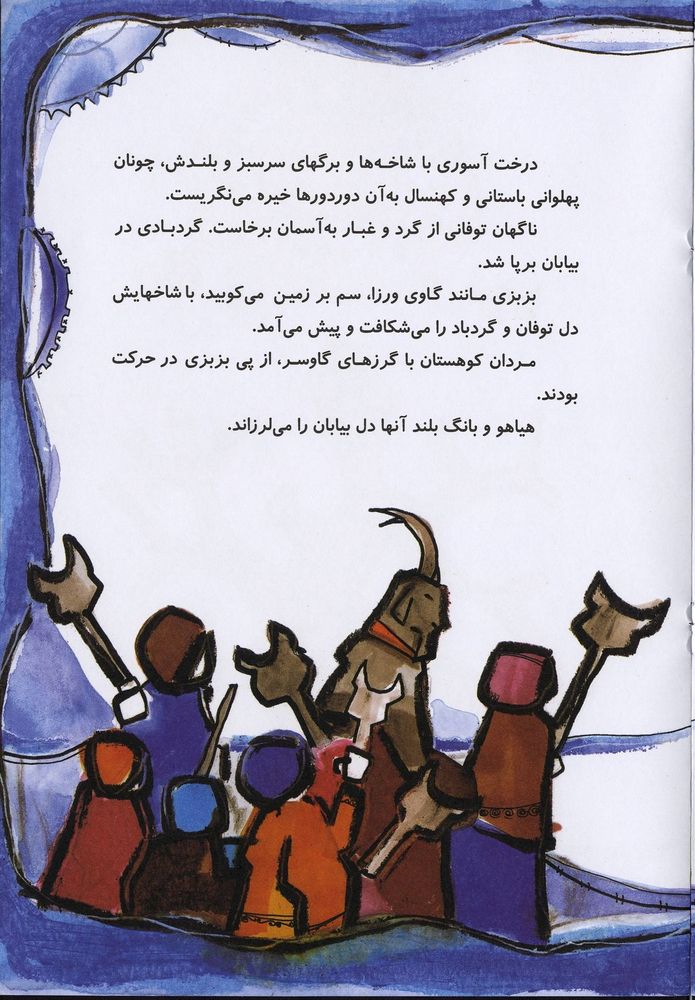 درخت آسوری با شاخه‌ها و برگهای سرسبز و بلندش، چونان
پهلوانی باستانی و کهنسال به‌آن دوردورها خیره می‌نگریست.
ناگهان توفانی از گرد و غبار به‌آسمان برخاست. گردبادی در
بیابان برپا شد.
بزبزی مانند گاوی ورزا، سم بر زمین می‌کوبید، با شاخهایش
دل توفان و گردباد را می‌شکافت و پیش می‌آمد.
مردان کوهستان با گرزهای گاوسر، از پی بزبزی در حرکت
بودند.
هیاهو و بانگ بلند آنها دل بیابان را می‌لرزاند.